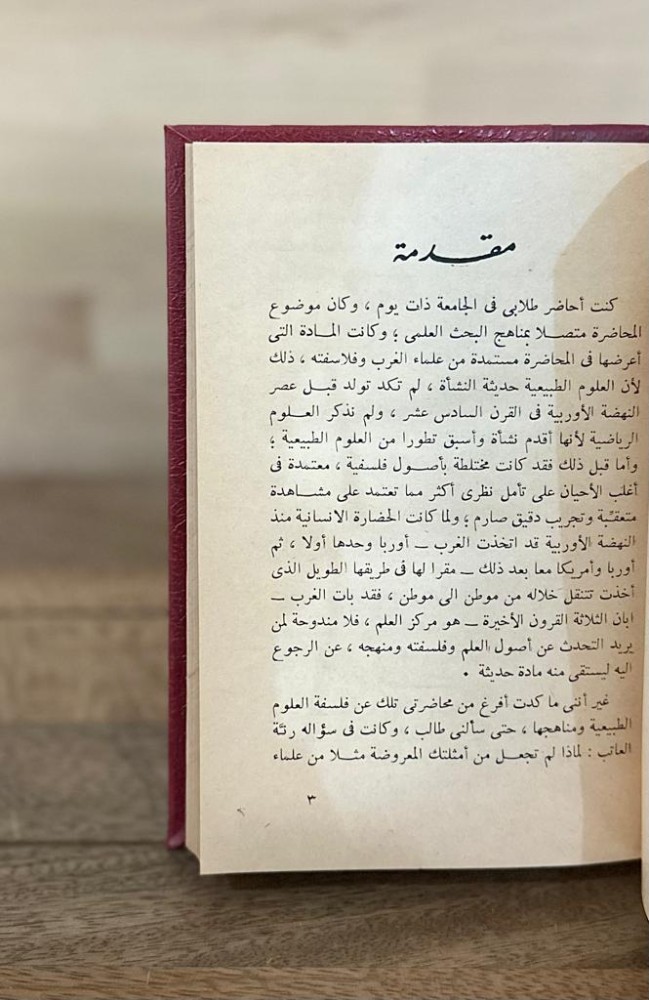 مقدمة
كنت أحاضر طلابى فى الجامعة ذات يوم ، وكان موضوع
المحاضرة متصلا بمناهج البحث العلمى ؛ وكانت المادة التى
أعرضها فى المحاضرة مستمدة من علماء الغرب وفلاسفته ، ذلك
لأن العلوم الطبيعية حديثة النشأة ، لم تكد تولد قبل عصر
النهضة الأوربية فى القرن السادس عشر ، ولم نذكر العلوم
الرياضية لأنها أقدم نشأة وأسبق تطورا من العلوم الطبيعية ؛
وأما قبل ذلك فقد كانت مختلطة بأصول فلسفية ، معتمدة فى
أغلب الأحيان على تأمل نظرى أكثر مما تعتمد على مشاهدة
متعقبة وتجريب دقيق صارم ؛ ولما كانت الحضارة الانسانية منذ
النهضة الأوربية قد اتخذت الغرب — أوربا وحدها أولا ، ثم
أوربا وأمريكا معا بعد ذلك — مقرا لها فى طريقها الطويل الذى
أخذت تتنقل خلاله من موطن الى موطن ، فقد بات الغرب —
ابان الثلاثة القرون الأخيرة — هو مركز العلم ، فلا مندوحة لمن
يريد التحدث عن أصول العلم وفلسفته ومنهجه ، عن الرجوع
اليه ليستقى منه مادة حديثة .
غير أننى ما كدت أفرغ من محاضرتى تلك عن فلسفة العلوم
الطبيعية ومناهجها ، حتى سألنى طالب ، وكانت فى سؤاله رنّة
العاتب : لماذا لم تجعل من أمثلتك المعروضة مثلا من علماء
٣